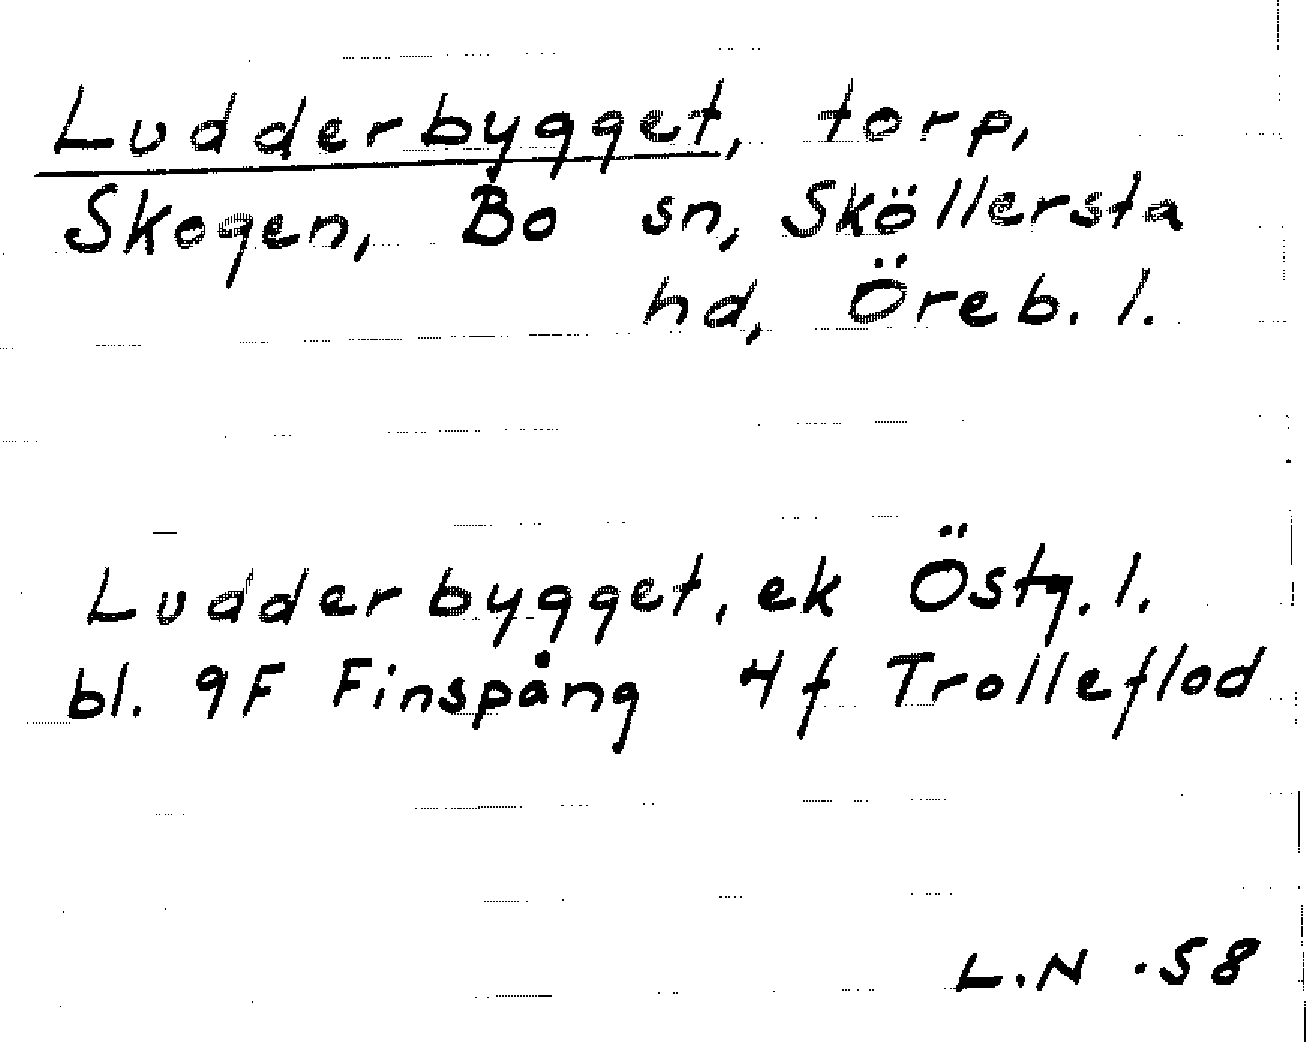 Ludderbygget, torp,
Skogen, Bo sn, Sköllersta
hd, Öreb. l.
Ludderbygget, ek Östg. l.
bl. 9F Finspång 4f Trolleflod
L.N .58